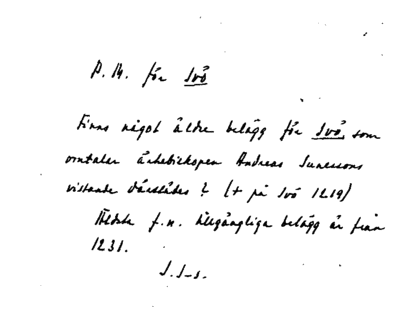 P.M. för Ivö
Finns något äldre belägg för Ivö, som
omtalar ärkebiskopen Andreas Sunessons
vistande därstädes? (+ på Ivö 1219)
Äldsta f.n. tillgängliga belägg är från
1231.
J.S-s.